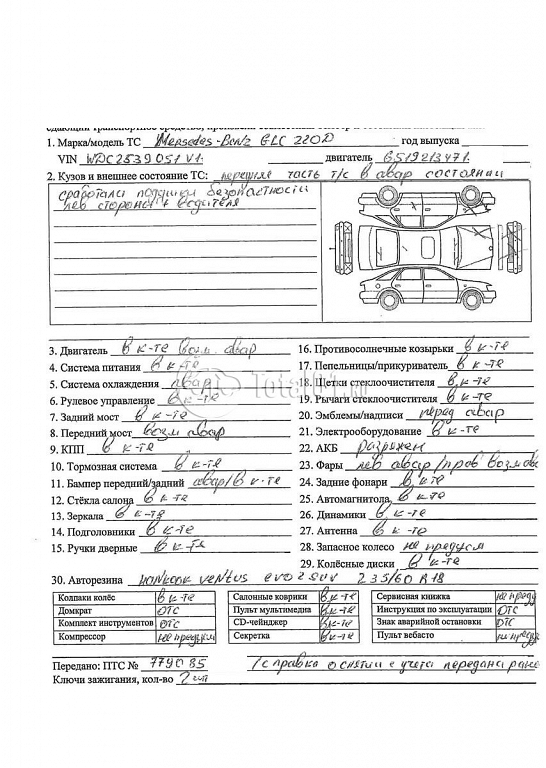 1. Марка/модель ТС Mersedes-Benz GLC 220D год выпуска
VIN WDC2539051V1. двигатель 651921347 1.
2. Кузов и внешнее состояние ТС: передняя часть т/с в авар состоянии
сработали подушки безопастности
лев сторона + водителя
3. Двигатель в к-те возм. авар
4. Система питания в к-те
5. Система охлаждения авар
6. Рулевое управление в к-те
7. Задний мост в к-те
8. Передний мост возм авар
9. КПП в к-те
10. Тормозная система в к-те
11. Бампер передний/задний авар/в к-те
12. Стёкла салона в к-те
13. Зеркала в к-те
14. Подголовники в к-те
15. Ручки дверные в к-те
16. Противосолнечные козырьки в к-те
17. Пепельницы/прикуриватель в к-те
18. Щетки стеклоочистителя в к-те
19. Рычаги стеклоочистителя в к-те
20. Эмблемы/надписи перед авар
21. Электрооборудование в к-те
22. АКБ разряжен
23. Фары лев авар/прав возм ава
24. Задние фонари в к-те
25. Автомагнитола в к-те
26. Динамики в к-те
27. Антенна в к-те
28. Запасное колесо не предусм
29. Колёсные диски в к-те
30. Авторезина Hankook ventus evo2 suv 235/60 R18
Колпаки колёс в к-те
Домкрат ОТС
Комплект инструментов ОТС
Компрессор не предусм
Салонные коврики в к-те
Пульт мультимедиа в к-те
CD-чейнджер в к-те
Секретка в к-те
Сервисная книжка не преду
Инструкция по эксплуатации ОТС
Знак аварийной остановки ОТС
Пульт вебасто не преду
Передано: ПТС № 779085 /справка о снятии с учета передана ране
Ключи зажигания, кол-во 2 шт